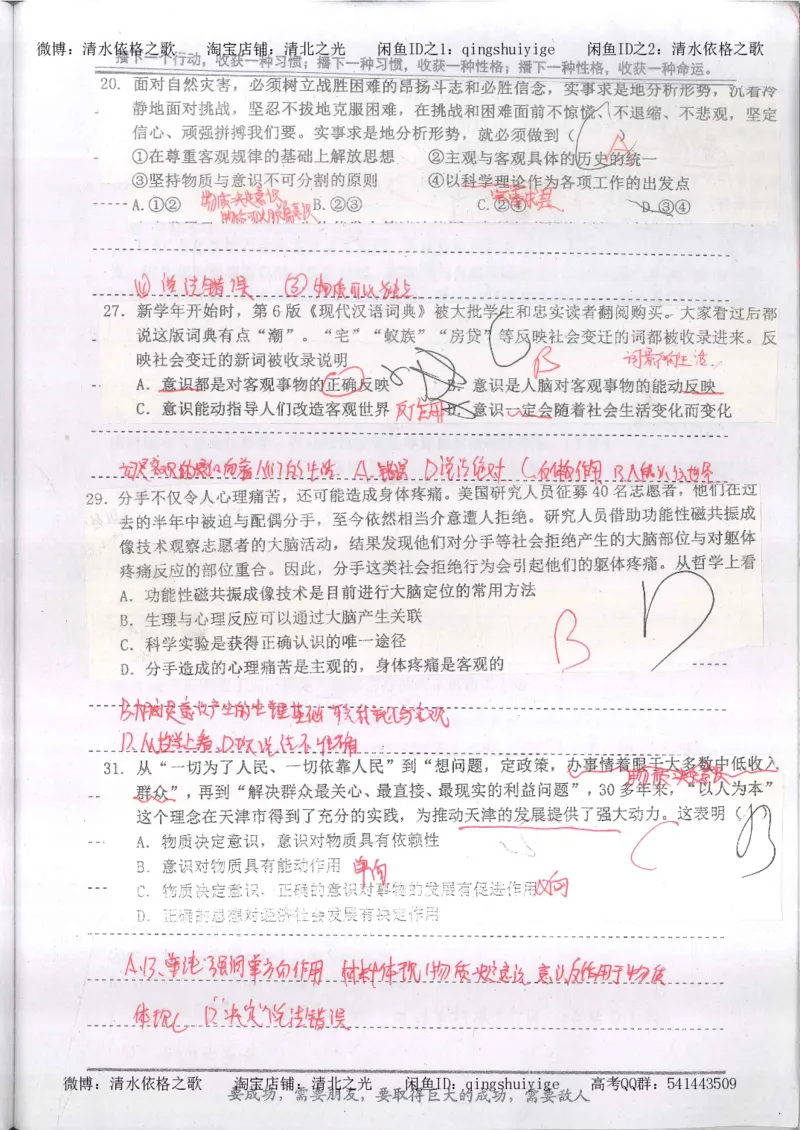 微博：清水依格之歌　淘宝店铺：清北之光　闲鱼ID之1：qingshuiyige　闲鱼ID之2：清水依格之歌
播下一个行动，收获一种习惯；播下一种习惯，收获一种性格；播下一种性格，收获一种命运。
20. 面对自然灾害，必须树立战胜困难的昂扬斗志和必胜信念，实事求是地分析形势，沉着冷
静地面对挑战，坚忍不拔地克服困难，在挑战和困难面前不惊慌、不退缩、不悲观，坚定
信心、顽强拼搏我们要。实事求是地分析形势，就必须做到（ ）
A
①在尊重客观规律的基础上解放思想 ②主观与客观具体的历史的统一
③坚持物质与意识不可分割的原则 ④以科学理论作为各项工作的出发点
A.①② B.②③ C.②④ D.③④
物质决定意识
④说法错误 ③物质可以独立
27. 新学年开始时，第 6 版《现代汉语词典》被大批学生和忠实读者翻阅购买。大家看过后都
说这版词典有点“潮”。“宅”“蚁族”“房贷”等反映社会变迁的词都被收录进来。反
映社会变迁的新词被收录说明
B
A．意识都是对客观事物的正确反映 B．意识是人脑对客观事物的能动反映
C．意识能动指导人们改造客观世界 反作用 D．意识一定会随着社会生活变化而变化
29. 分手不仅令人心理痛苦，还可能造成身体疼痛。美国研究人员征募 40 名志愿者，他们在过
去的半年中被迫与配偶分手，至今依然相当介意遭人拒绝。研究人员借助功能性磁共振成
像技术观察志愿者的大脑活动，结果发现他们对分手等社会拒绝产生的大脑部位与对躯体
疼痛反应的部位重合。因此，分手这类社会拒绝行为会引起他们的躯体疼痛。从哲学上看
A．功能性磁共振成像技术是目前进行大脑定位的常用方法
B．生理与心理反应可以通过大脑产生关联
C．科学实验是获得正确认识的唯一途径
D．分手造成的心理痛苦是主观的，身体疼痛是客观的
B D
D.从哲学上看，D项说法不准确
31. 从“一切为了人民、一切依靠人民”到“想问题，定政策，办事情着眼于大多数中低收入
群众”，再到“解决群众最关心、最直接、最现实的利益问题”，30 多年来，“以人为本”
物质决定意识
这个理念在天津市得到了充分的实践，为推动天津的发展提供了强大动力。这表明（ ）
C B
A．物质决定意识，意识对物质具有依赖性
B．意识对物质具有能动作用 单向
C．物质决定意识，正确的意识对事物的发展有促进作用 双向
D．正确的思想对经济社会发展有决定作用
A.B.单纯强调单方向作用 材料体现物质决定意识 意识反作用于物质
体现C D“决定”说法错误
微博：清水依格之歌　淘宝店铺：清北之光　闲鱼ID：qingshuiyige　高考QQ群：541443509
要成功，需要朋友，要取得巨大的成功，需要敌人